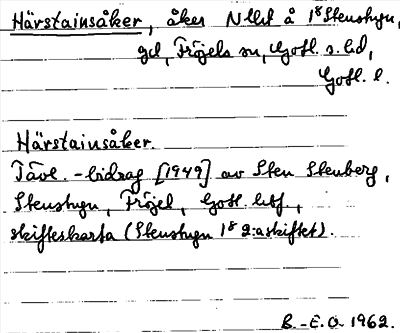 Härstainsåker, åker NLkt å 1⁸ Stenstugu,
gd, Fröjels sn, Gotl. s. hd,
Gotl. l.
Härstainsåker.
Tävl.-bidrag [1949] av Sten Stenberg,
Stenstugu, Fröjel, Gotl. hbf.,
skifteskarta (Stenstugu 1⁸ 2:a skiftet).
B.-E.O. 1962.